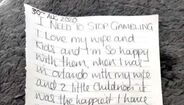 Aug 2020
I NEED TO STOP GAMBLING
I Love my wife and
Kids and I'm so happy
with them, when I was
in orlando with my wife
and 2 little Children it
was the happiest I have